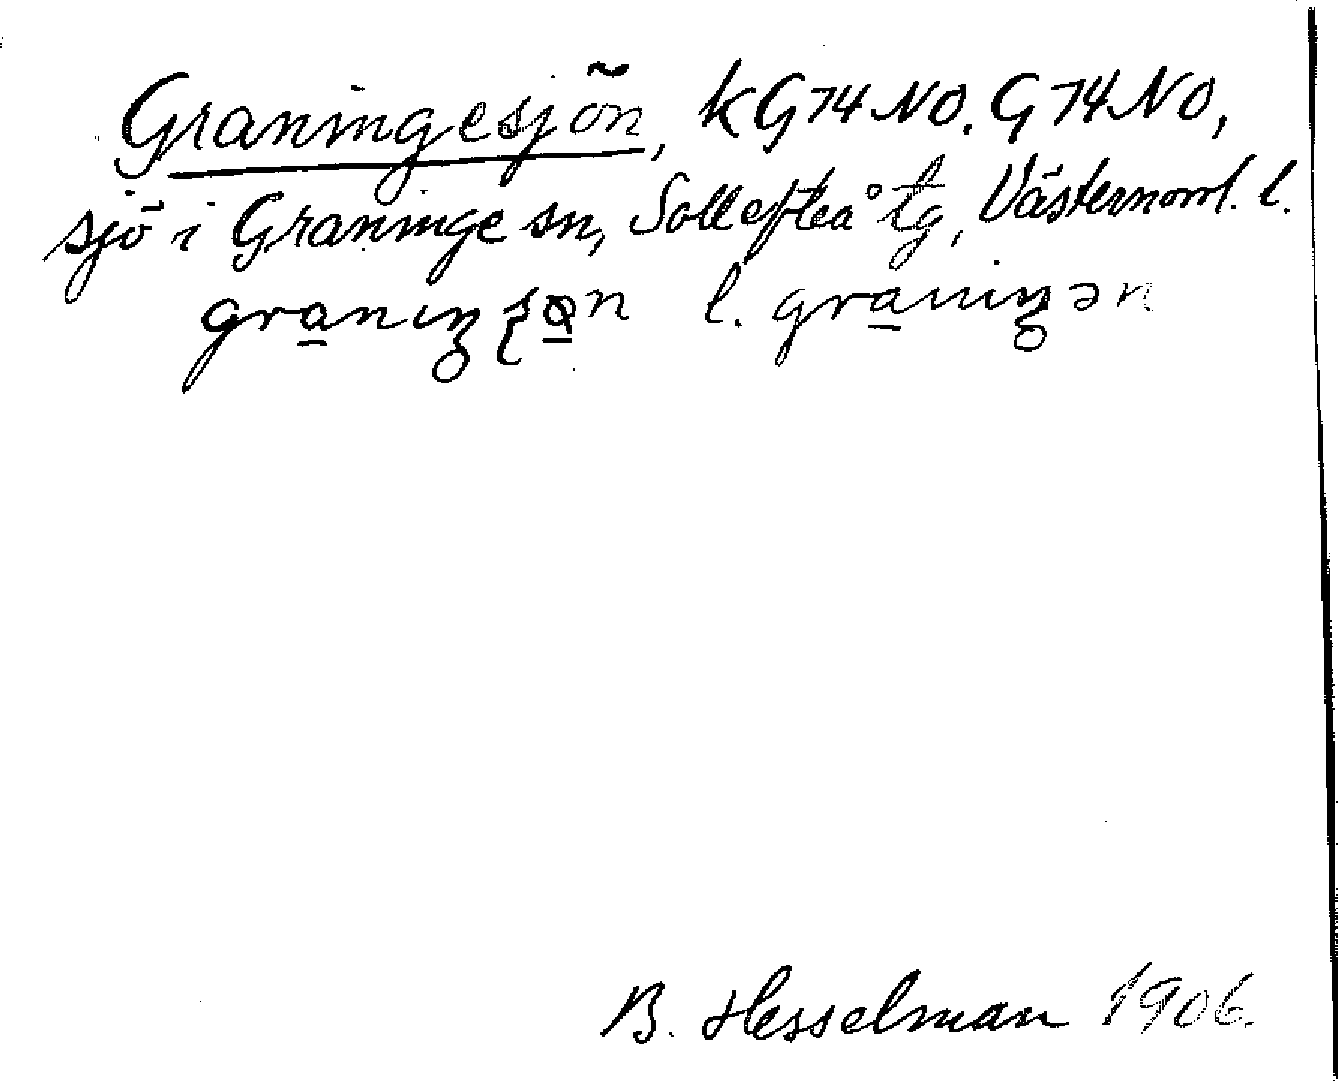 Graningesjön, kG74NO. G74NO,
sjö i Graninge sn, Sollefteå tg, Västernorrl. l.
granıŋ ʂøn l. granıŋən
B. Hesselman 1906.